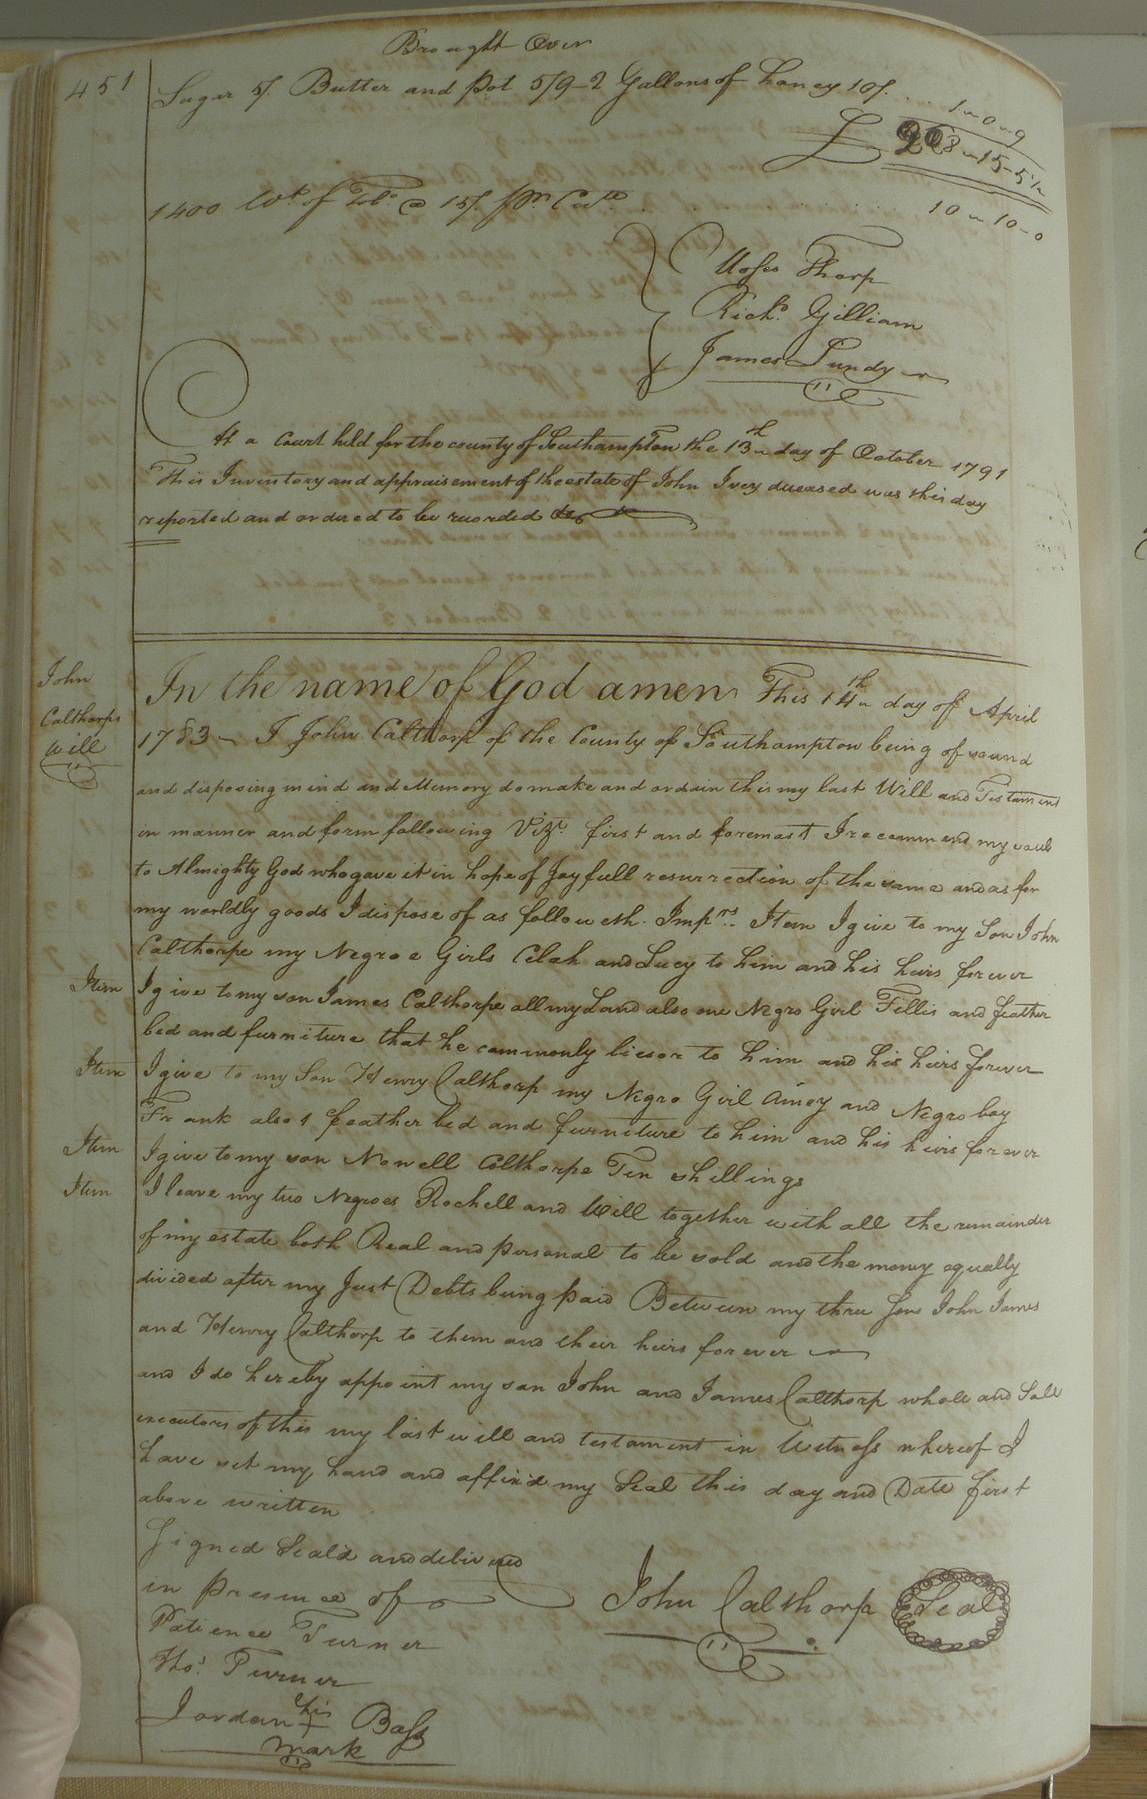 Brought Over
451
Sugar 5/. Butter and Pot 5/9 - 2 Gallons of Honey 10/. 1 " 0 " 9
£ 208 " 15 - 5 1/2
1400 Wt. of Tobo. @ 15/. pr. Cwt. 10 " 10 - 0
Moses Tharp
Richd. Gilliam
James Pundy
At a Court held for the county of Southampton the 13th day of October 1791
This Inventory and appraisement of the estate of John Ivey deceased was this day
reported and ordered to be recorded
John
Calthorps
Will
In the name of God amen This 14th day of April
1783 - I John Calthorp of the County of Southampton being of sound
and disposing mind and Memory do make and ordain this my last Will and Testament
in manner and form following Vizt. first and foremost I recommend my soul
to Almighty God who gave it in hope of Joyfull resurrection of the same and as for
my worldly goods I dispose of as followeth. Imprs. Item I give to my Son John
Calthorpe my Negroe Girls Celah and Lucy to him and his heirs forever
Item I give to my son James Calthorpe all my Land also one Negro Girl Fillis and feather
bed and furniture that he commonly lies on to him and his heirs forever
Item I give to my Son Henry Calthorp my Negro Girl Amey and Negro boy
Frank also 1 feather bed and furniture to him and his heirs forever
Item I give to my son Nowell Colthorpe Ten shillings
Item I leave my two Negroes Rochell and Will together with all the remainder
of my estate both Real and personal to be sold and the money equally
divided after my Just Debts being paid Between my three Sons John James
and Henry Calthorp to them and their heirs forever
and I do hereby appoint my son John and James Calthorp whole and Sole
executors of this my last will and testament in Witness whereof I
have set my hand and affix'd my Seal this day and Date first
above written
Signed Seal'd and delivered
in presence of
John Calthorp Seal
Patience Turner
Thos. Turner
Jordan his + Bass
mark